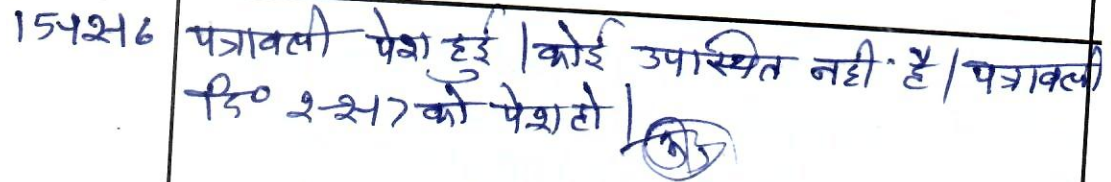 पत्रावली पेश हुई । कोई उपस्थित नही है । पत्रावली
दि० २-२-17 को पेश हो ।